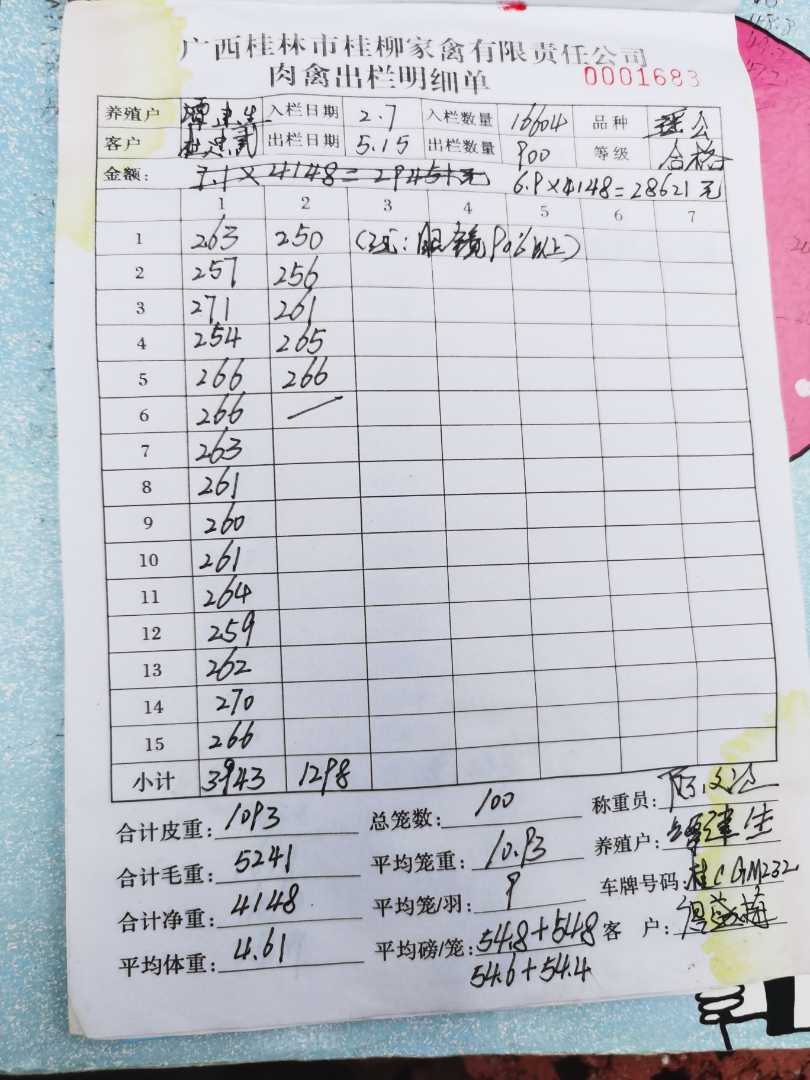 广西桂林市桂柳家禽有限责任公司
肉禽出栏明细单 0001683
养殖户 入栏日期 2.7 入栏数量 16604 品种
客户 出栏日期 5.15 出栏数量 900 等级 合格
金额: 7.1×4148=29451元 6.9×4148=28621元
1 2 3 4 5 6 7
1 263 250 (注:眼镜90%以上)
2 257 256
3 271 261
4 254 265
5 266 266
6 266 —
7 263
8 261
9 260
10 261
11 264
12 259
13 262
14 270
15 266
小计 3943 1298
合计皮重: 1093 总笼数: 100 称重员:
合计毛重: 5241 平均笼重: 10.93 养殖户:
合计净重: 4148 平均笼/羽: 9 车牌号码: 桂CGM232
平均体重: 4.61 平均磅/笼: 54.8+54.8 客户:
54.6+54.4